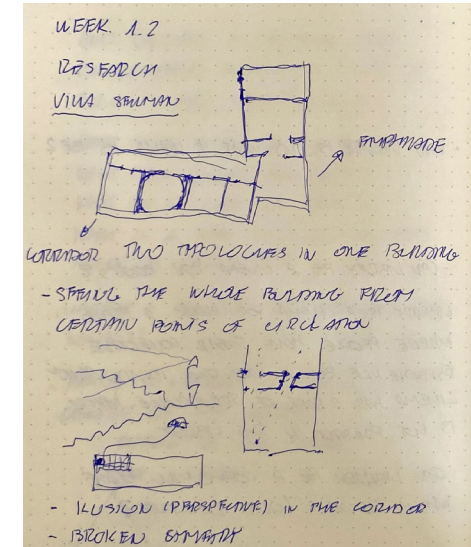 WEEK 1.2
RESEARCH
VILLA
CORRIDOR TWO TYPOLOGIES IN ONE BUILDING
- SEEING THE WHOLE BUILDING FROM
CERTAIN POINTS OF CIRCLATION
- ILUSION (PERSPECTIVE) IN THE CORIDOR
- BROKEN SYMMETRY